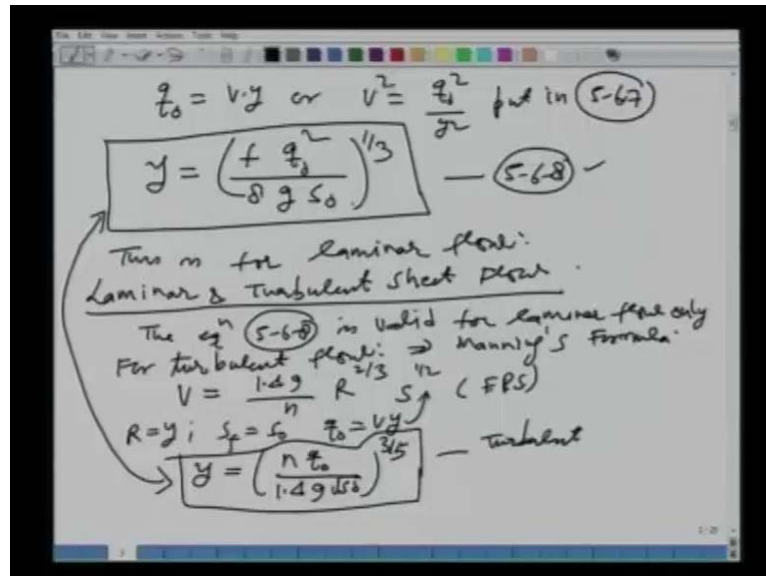 File Edit View Insert Actions Tools Help
q₀ = v·y or v² = q₀²/y² put in (5-6-7)
y = (f q₀² / 8 g s₀)^1/3 — (5-6-8) ✓
This is for laminar flow:
Laminar & Turbulent Sheet flow.
The eqⁿ (5-6-8) is valid for laminar flow only
For turbulent flow: ⇒ Manning's Formula.
V = 1.49/n R^2/3 S^1/2 (FPS)
R = y ; S_f = s₀ q₀ = vy
y = (n q₀ / 1.49 √s₀)^3/5 — Turbulent